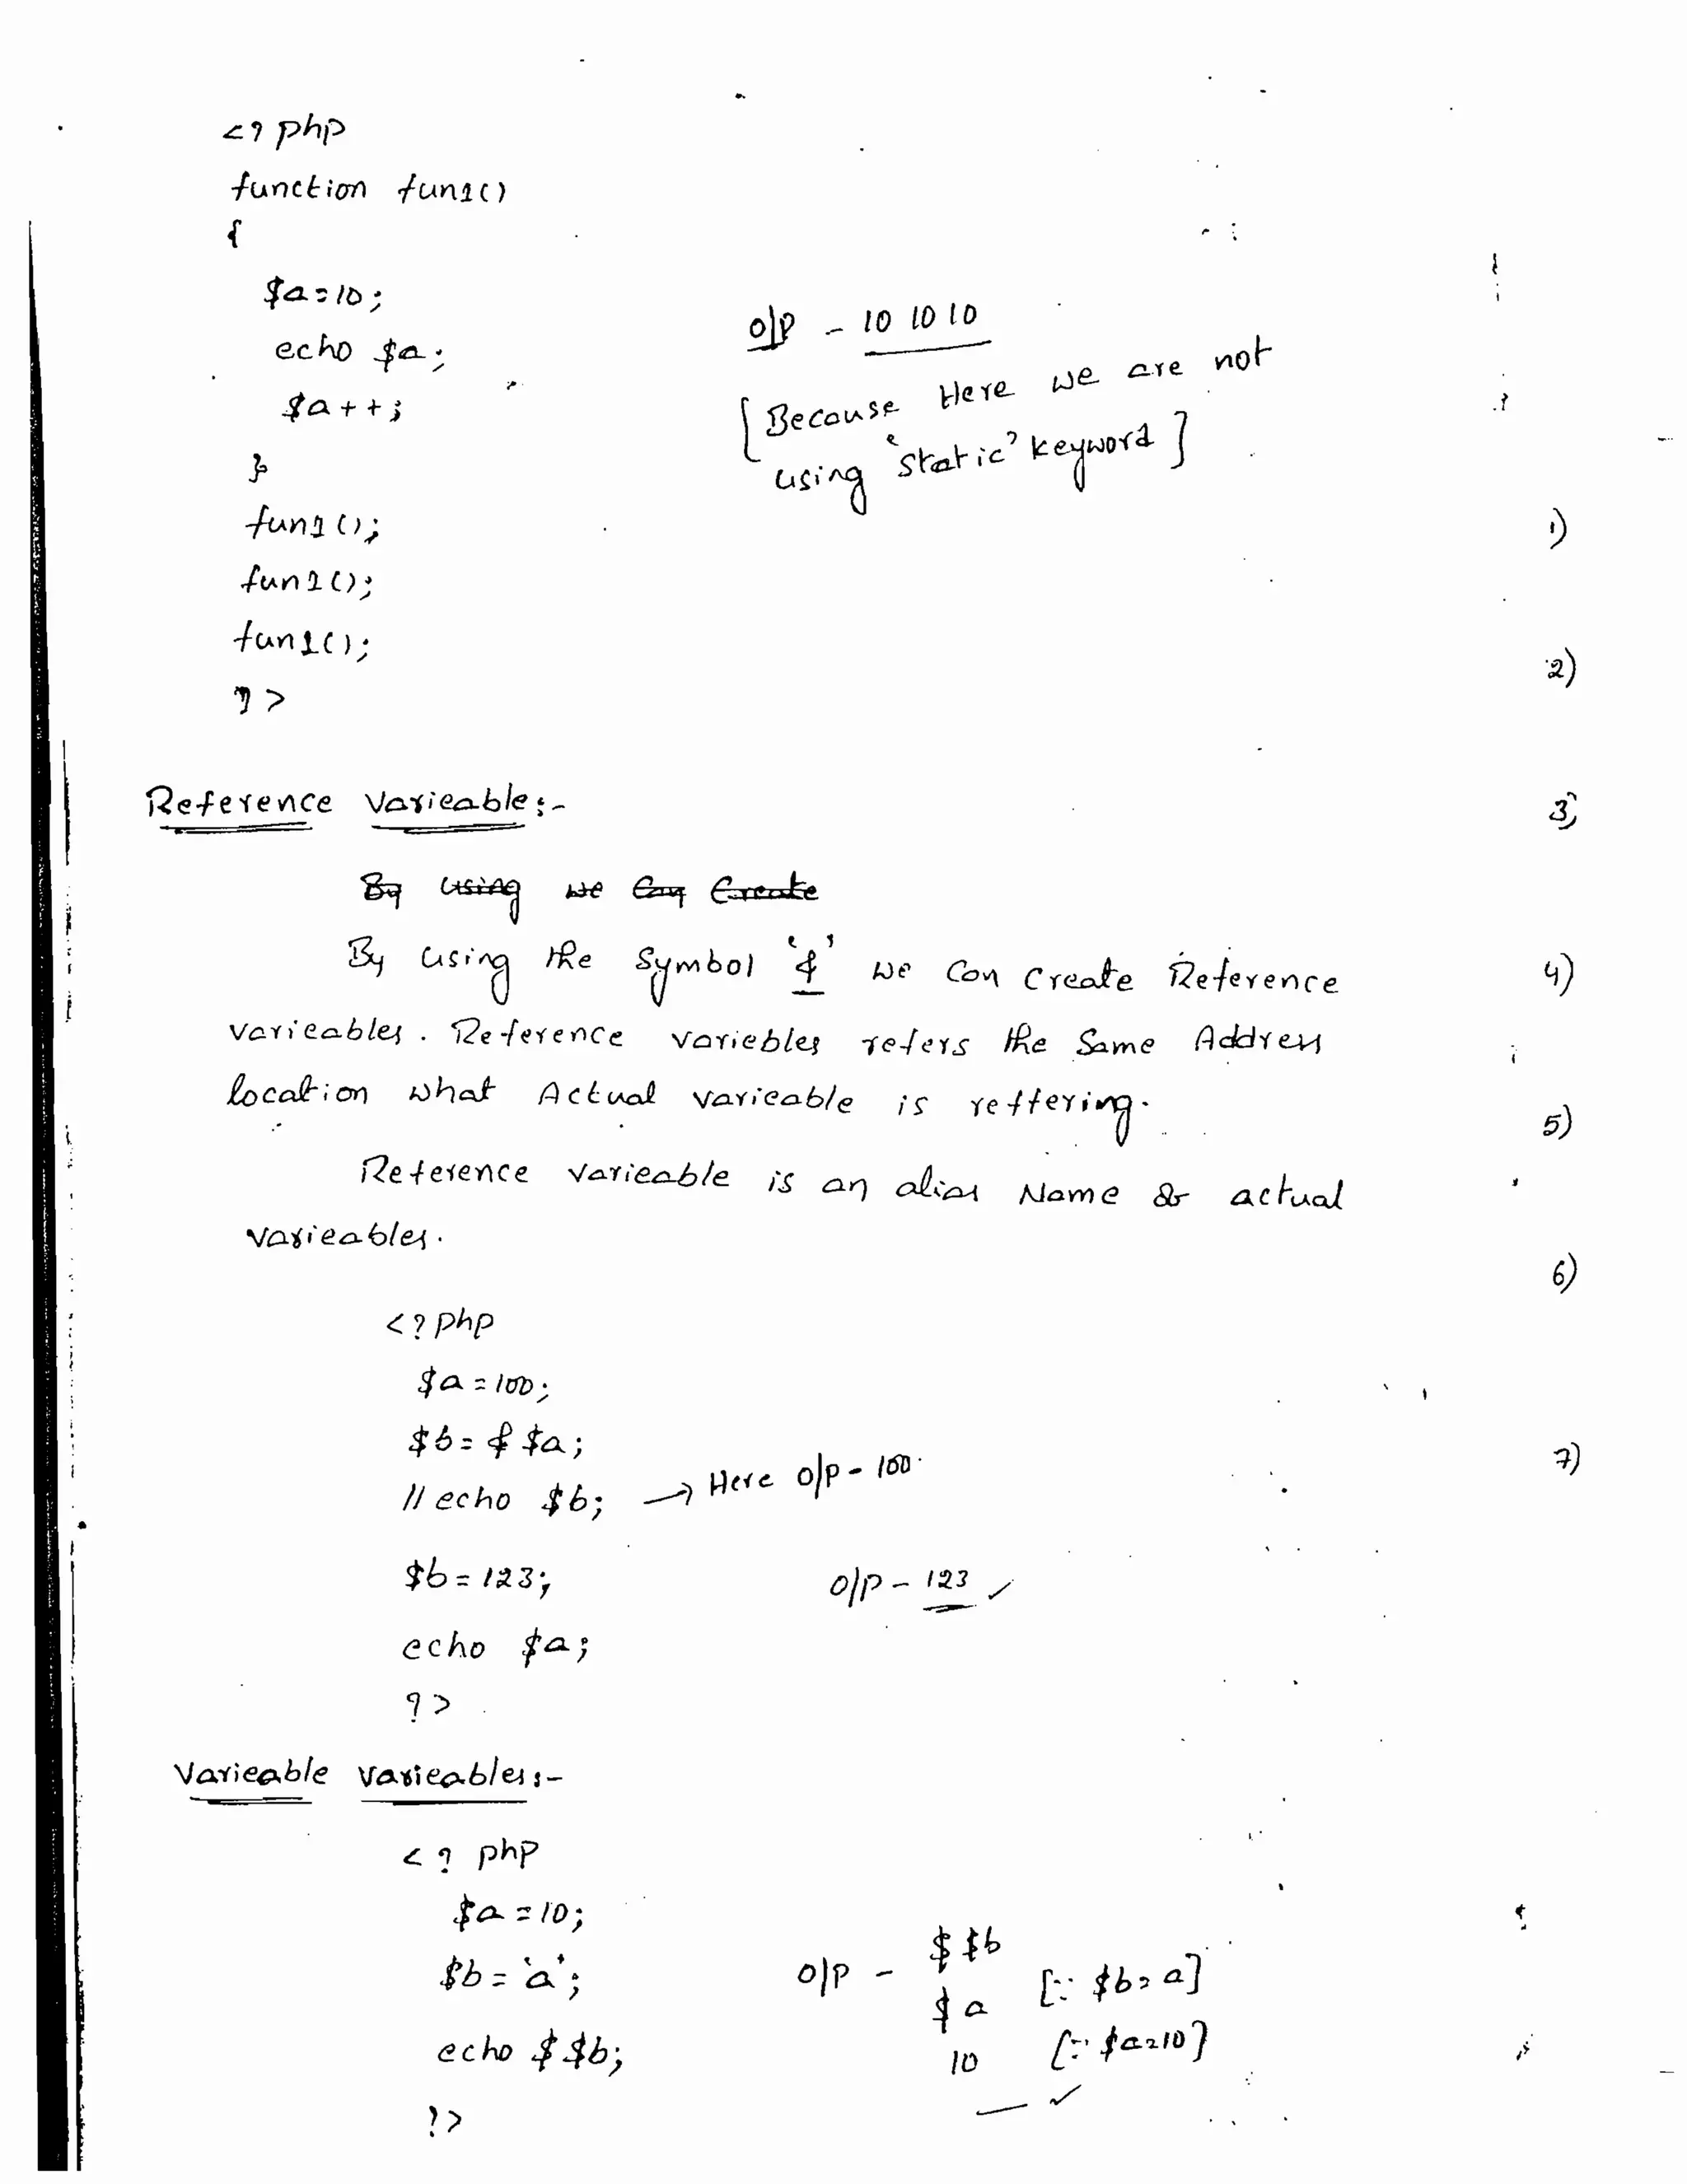 <? php
function fun1()
{
$a=10;
echo $a;
$a++;
}
fun1();
fun1();
fun1();
?>
o/p - 10 10 10
[Because Here we are not
using 'static' keyword]
Reference Varieable:-
By using we Can Create
By using the Symbol '&' we Can Create Reference
varieables. Reference variebles refers the Same Address
location what Actual varieable is reffering.
Reference varieable is an alias Name & actual
varieables.
<?php
$a=100;
$b=&$a;
// echo $b; → Here o/p - 100.
$b=123; o/p - 123 ✓
echo $a;
?>
Varieable Varieables:-
<? php
$a=10;
$b='a';
echo $$b;
?>
o/p - $$b
$a [∵ $b=a]
10 [∵ $a=10]
✓
1)
2)
3)
4)
5)
6)
7)